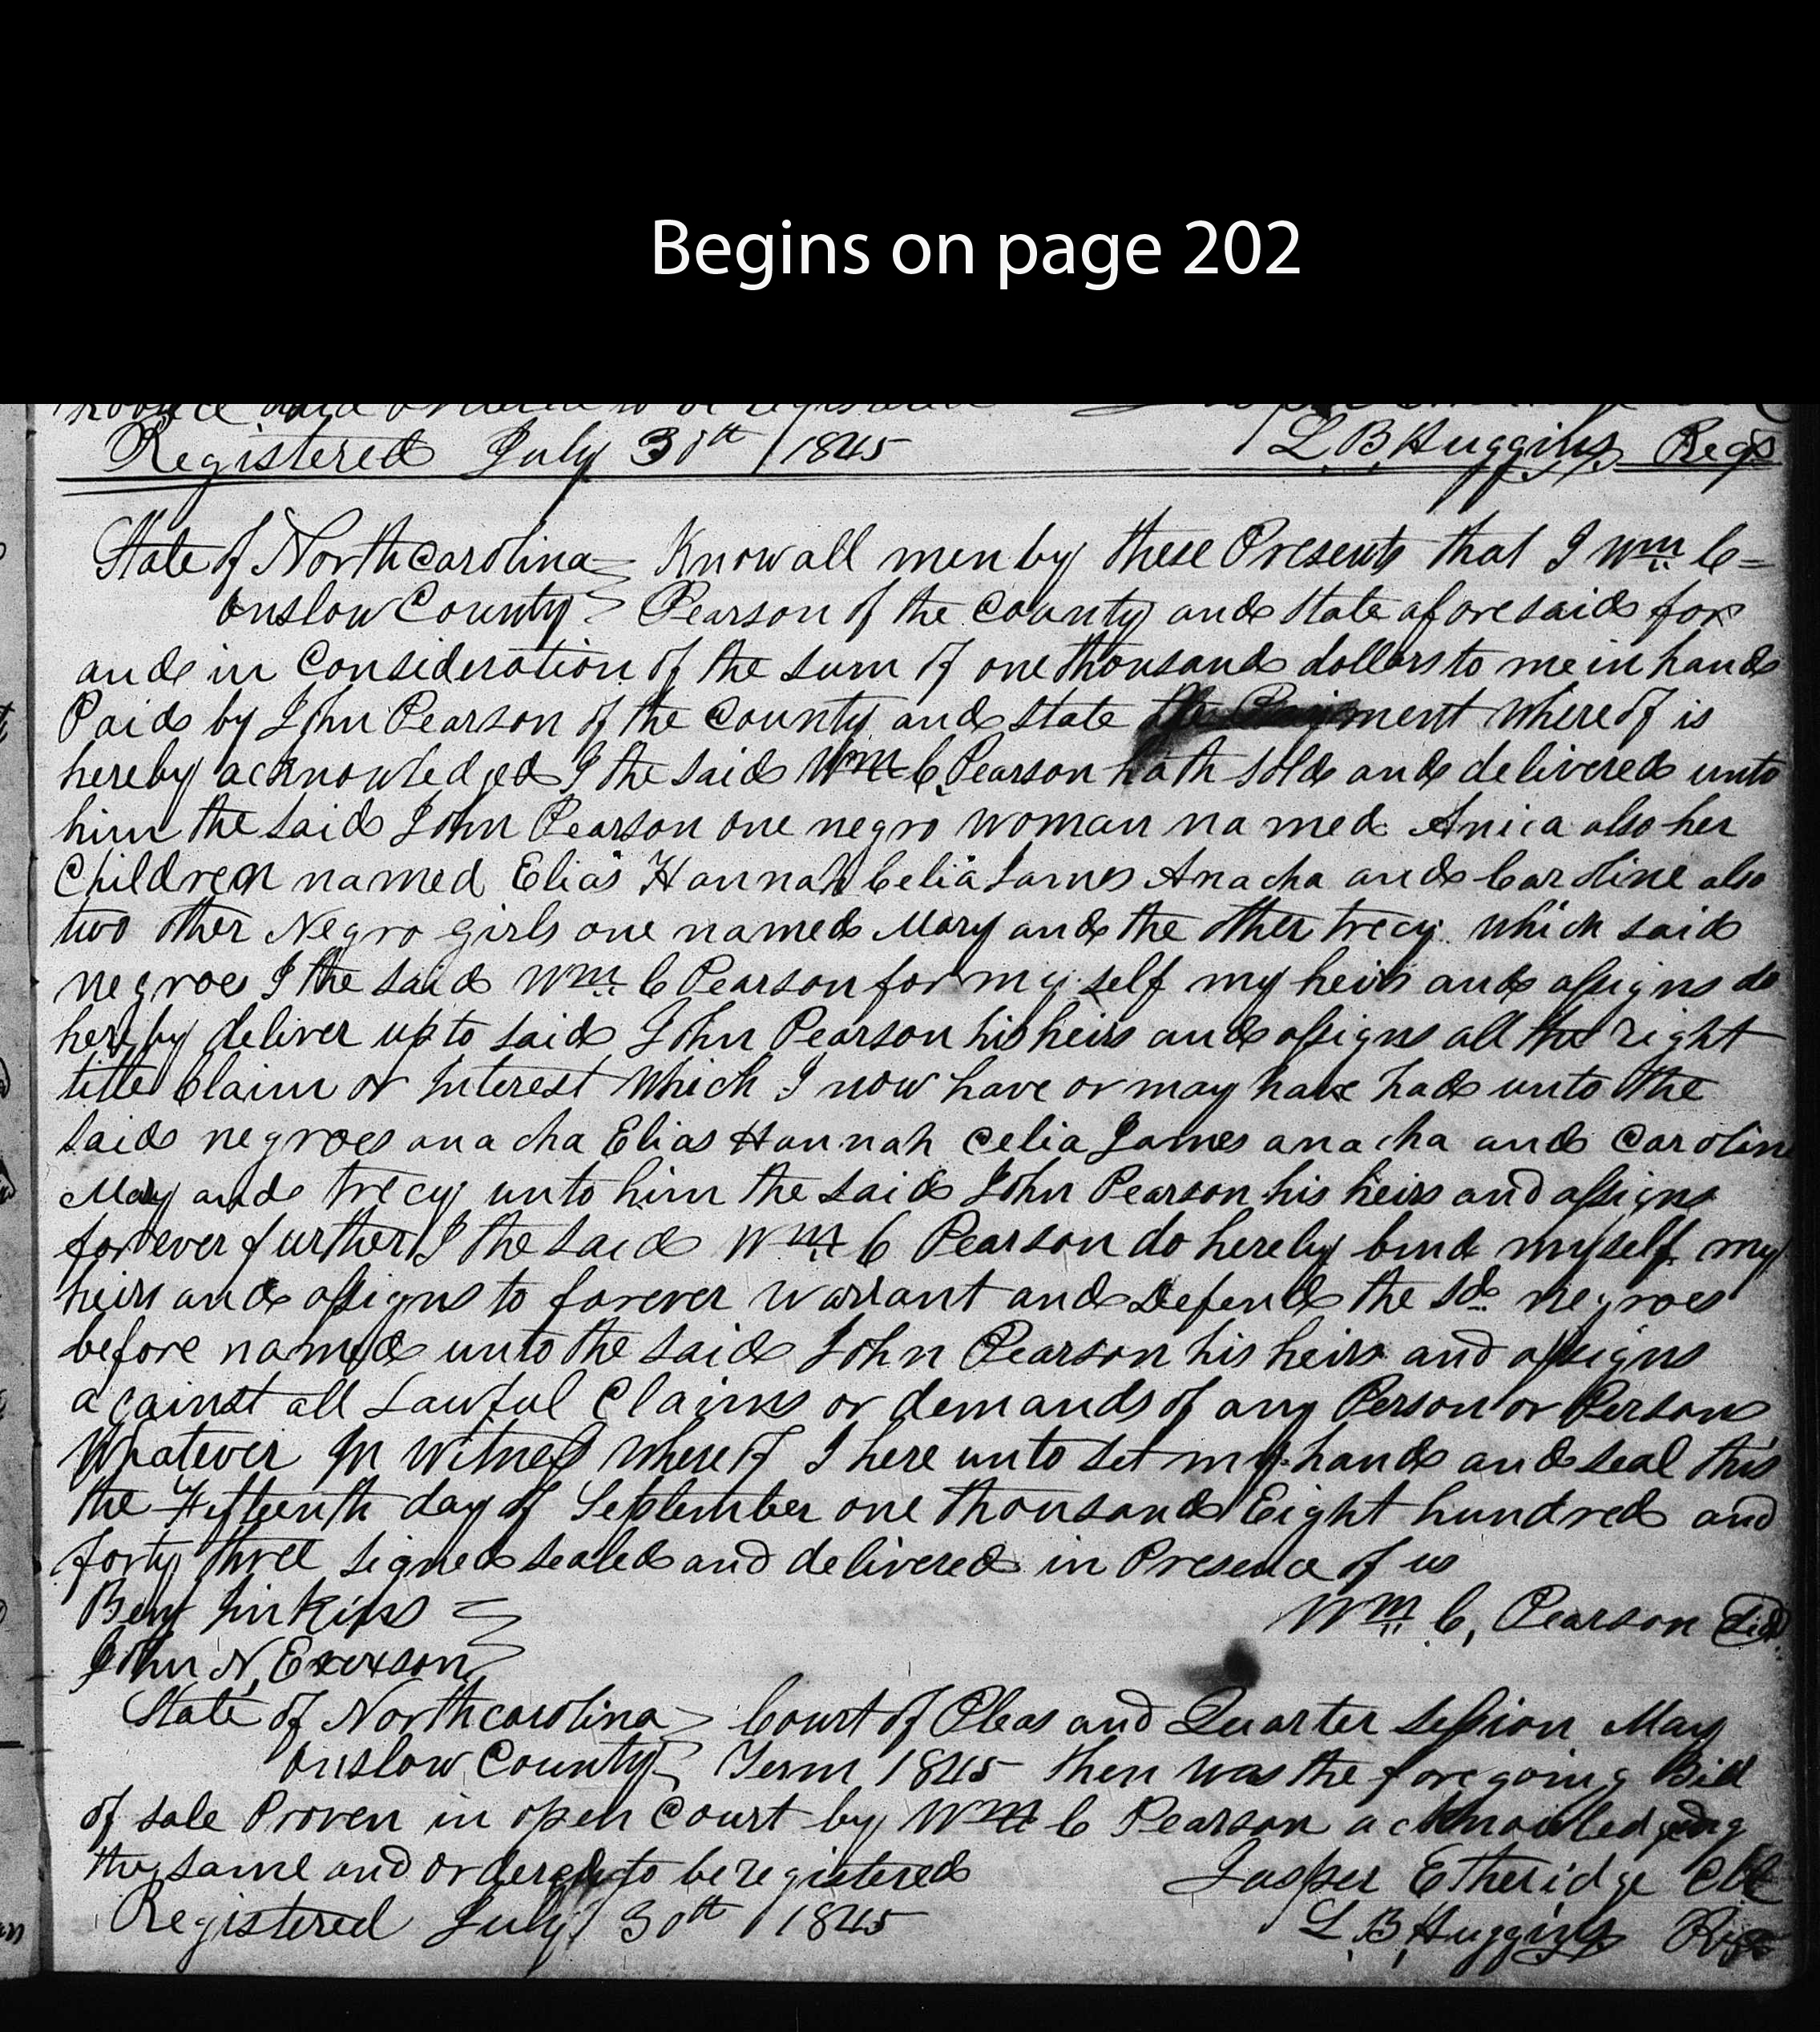 Begins on page 202
Registered July 30th 1845 L. B. Huggins Regs
State of North carolina Know all men by these Presents that I Wm C=
Onslow County Pearson of the County and State aforesaid for
and in Consideration of the sum of one thousand dollars to me in hand
Paid by John Pearson of the County and state the Paiment whereof is
hereby acknowledged I the said Wm C Pearson hath sold and delivered unto
him the said John Pearson one negro woman named Anica also her
Children named Elias Hannah Celia James Anacha and Caroline also
two other Negro girls one named Mary and the other trecy which said
negroes I the said Wm C Pearson for my self my heirs and assigns do
hereby deliver up to said John Pearson his heirs and assigns all the right
title Claim or Interest which I now have or may have had unto the
said negroes anacha Elias Hannah Celia James anacha and Caroline
Mary and trecy unto him the said John Pearson his heirs and assigns
forever further I the said Wm C Pearson do hereby bind myself my
heirs and assigns to forever warrant and Defend the sd negroes
before named unto the said John Pearson his heirs and assigns
against all Lawful Claims or demands of any Person or Persons
Whatever In Witness whereof I here unto set my hand and seal this
the Fifteenth day of September one thousand Eight hundred and
forty three signed sealed and delivered in Presence of us
Benj Jinkins Wm C, Pearson
John N,
State of North carolina Court of Pleas and Quarter Session May
Onslow County Term 1845 then was the foregoing Bill
of sale Proven in open Court by Wm C Pearson acknowledging
the same and ordered to be registered Jasper Etheridge Clk
Registered July 30th 1845 L. B. Huggins Regs